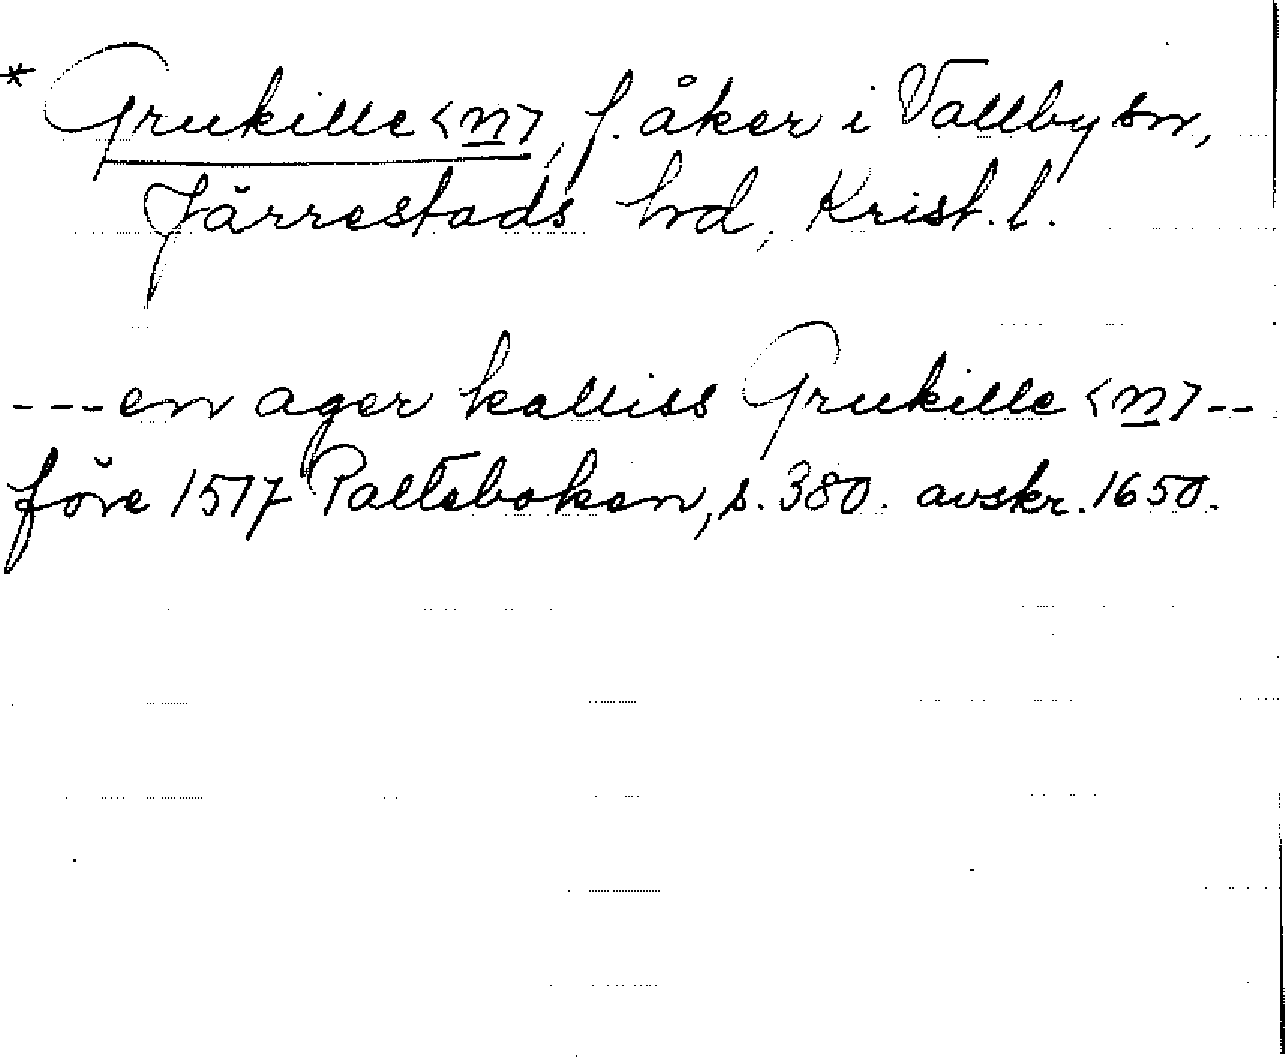 * Grukille<n>, f. åker i Vallby sn,
Järrestads hd, Krist. l.
---en ager kalliss Grukille<n>--
före 1517 Palteboken, s. 380. avskr. 1650.